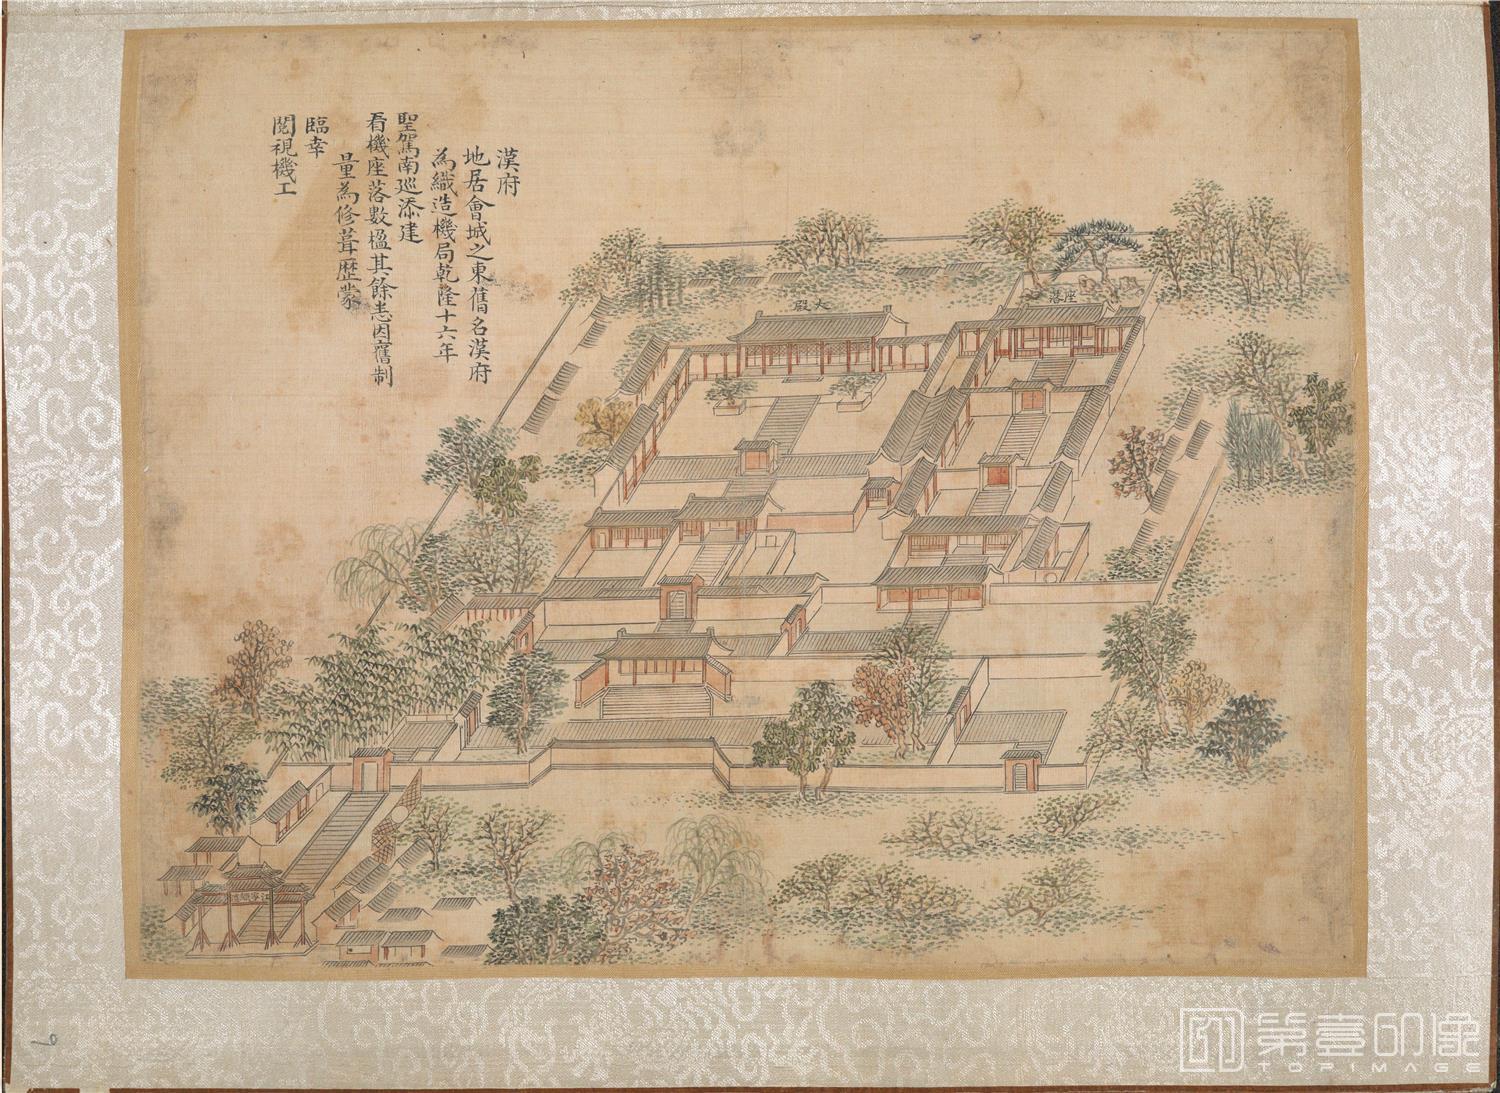 漢府
地居會城之東舊名漢府
為織造機局乾隆十六年
聖駕南巡添建
看機座落數楹其餘悉因舊制
量為修葺歷蒙
臨幸
閱視機工
大殿
座落
第壹印像
TOPIMAGE